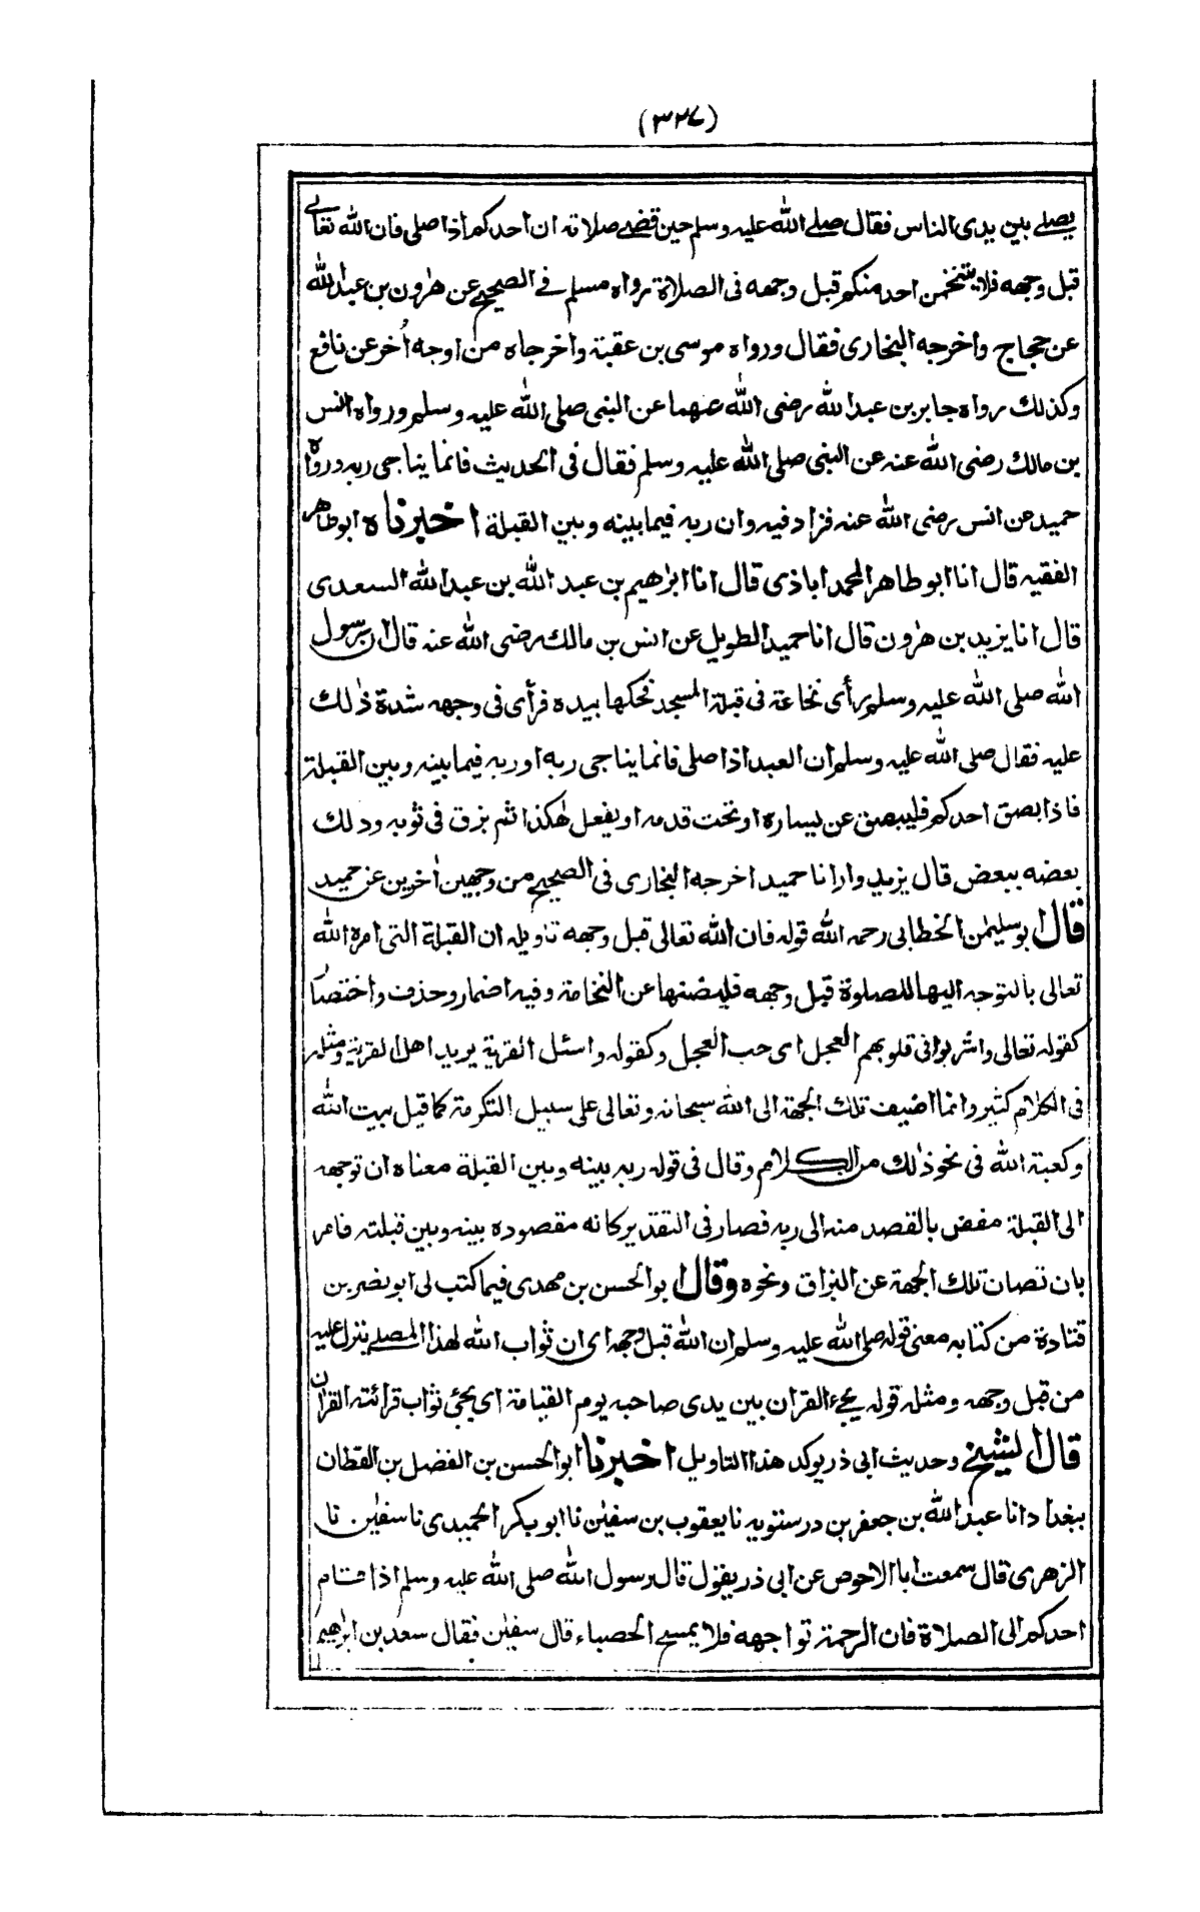 (٣٢٧)
يصلے بين يدى الناس فقال صلے الله عليه وسلم حين قضے صلاته ان احدكم اذا صلى فان الله تعالے
قبل وجهه فلا يتنخمن احد منكم قبل وجهه فى الصلاة رواه مسلم فے الصحيح عن هٰرون بن عبد الله
عن حجاج واخرجه البخارى فقال ورواه موسى بن عقبة واخرجاه من اوجه اُخر عن نافع
وكذلك رواه جابر بن عبد الله رضى الله عنهما عن النبى صلى الله عليه وسلم ورواه انس
بن مالك رضى الله عنه عن النبى صلى الله عليه وسلم فقال فى الحديث فانما يناجى ربه ورواه
حميد عن انس رضى الله عنه فزاد فيه وان ربه فيما بينه وبين القبلة اخبرناه ابو طاهر
الفقيه قال انا ابو طاهر المحمداباذى قال انا ابرٰهيم بن عبد الله بن عبد الله السعدى
قال انا يزيد بن هٰرون قال انا حميد الطويل عن انس بن مالك رضى الله عنه قال ان رسول
الله صلى الله عليه وسلم رأى نخاعة فى قبلة المسجد فحكها بيده فرأى فى وجهه شدة ذٰلك
عليه فقال صلى الله عليه وسلم ان العبد اذا صلى فانما يناجى ربه او ربه فيما بينه وبين القبلة
فاذا بصق احدكم فليبصق عن يساره او تحت قدمه او يفعل هٰكذا ثم بزق فى ثوبه ودلك
بعضه ببعض قال يزيد وارانا حميد اخرجه البخارى فى الصحيح من وجهين اٰخرين عن حميد
قال ابو سليمٰن الخطابى رحمه الله قوله فان الله تعالى قبل وجهه تاويله ان القبلة التى امره الله
تعالى بالتوجه اليها للصلوة قبل وجهه فليصنها عن النخامة وفيه اضمار وحذف واختصار
كقوله تعالى واشربوا فى قلوبهم العجل اى حب العجل وكقوله واسئل القرية يريد اهل القرية ومثله
فى الكلام كثير وانما اضيف تلك الجهة الى الله سبحانه وتعالى على سبيل التكرمة كما قيل بيت الله
وكعبة الله فى نحو ذٰلك من الكلام وقال فى قوله ربه بينه وبين القبلة معناه ان توجهه
الى القبلة مفض بالقصد منه الى ربه فصار فى التقدير كانه مقصوده بينه وبين قبلته فامر
بان تصان تلك الجهة عن البزاق ونحوه وقال ابو الحسن بن مهدى فيما كتب لى ابو نصر بن
قتادة من كتابه معنى قوله صلى الله عليه وسلم ان الله قبل وجهه اى ان ثواب الله لهذا المصلے ينزل عليه
من قبل وجهه ومثله قوله يجىء القراٰن بين يدى صاحبه يوم القيامة اى يجئ ثواب قرائته القراٰن
قال الشيخ وحديث ابى ذر يوكد هذا التاويل اخبرنا ابو الحسن بن الفضل بن القطان
ببغداد انا عبد الله بن جعفر بن درستويه نا يعقوب بن سفيٰن نا ابو بكر الحميدى نا سفيٰن نا
الزهرى قال سمعت ابا الاحوص عن ابى ذر يقول قال رسول الله صلى الله عليه وسلم اذا قام
احدكم الى الصلاة فان الرحمة تواجهه فلا يمسح الحصباء قال سفيٰن فقال سعد بن ابرٰهيم